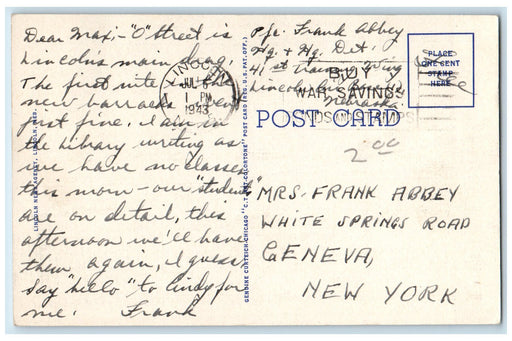 Dear Maxi - "O" street is
Lincoln's main drag.
The first nite in the
new barracks went
just fine. I am in
the library writing as
we have no classes
this morn - our "students"
are on detail, this
afternoon we'll have
them again, I guess.
Say "hello" to Lindy for
me. Frank
LINCOLN NEWS AGENCY, LINCOLN, NEB.
GENUINE CURTEICH-CHICAGO "C.T. ART-COLORTONE" POST CARD (REG. U.S. PAT. OFF.)
LINCOLN
JUL 6
1 PM
1943
Pfc. Frank Abbey
Hq. & Hq. Det.
41st Training Wing
Lincoln
Nebraska
BUY
WAR SAVINGS
BONDS AND STAMPS
Free
PLACE
ONE CENT
STAMP
HERE
POST CARD
2.00
MRS. FRANK ABBEY
WHITE SPRINGS ROAD
GENEVA,
NEW YORK